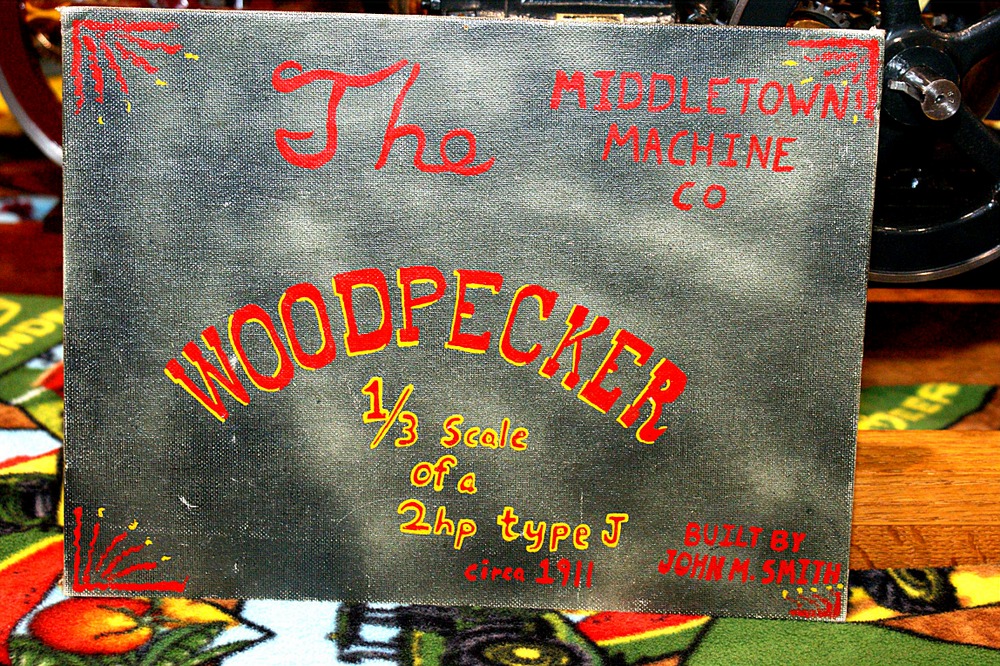 The
MIDDLETOWN
MACHINE
CO
WOODPECKER
1/3 Scale
of a
2hp type J
circa 1911
BUILT BY
JOHN M. SMITH